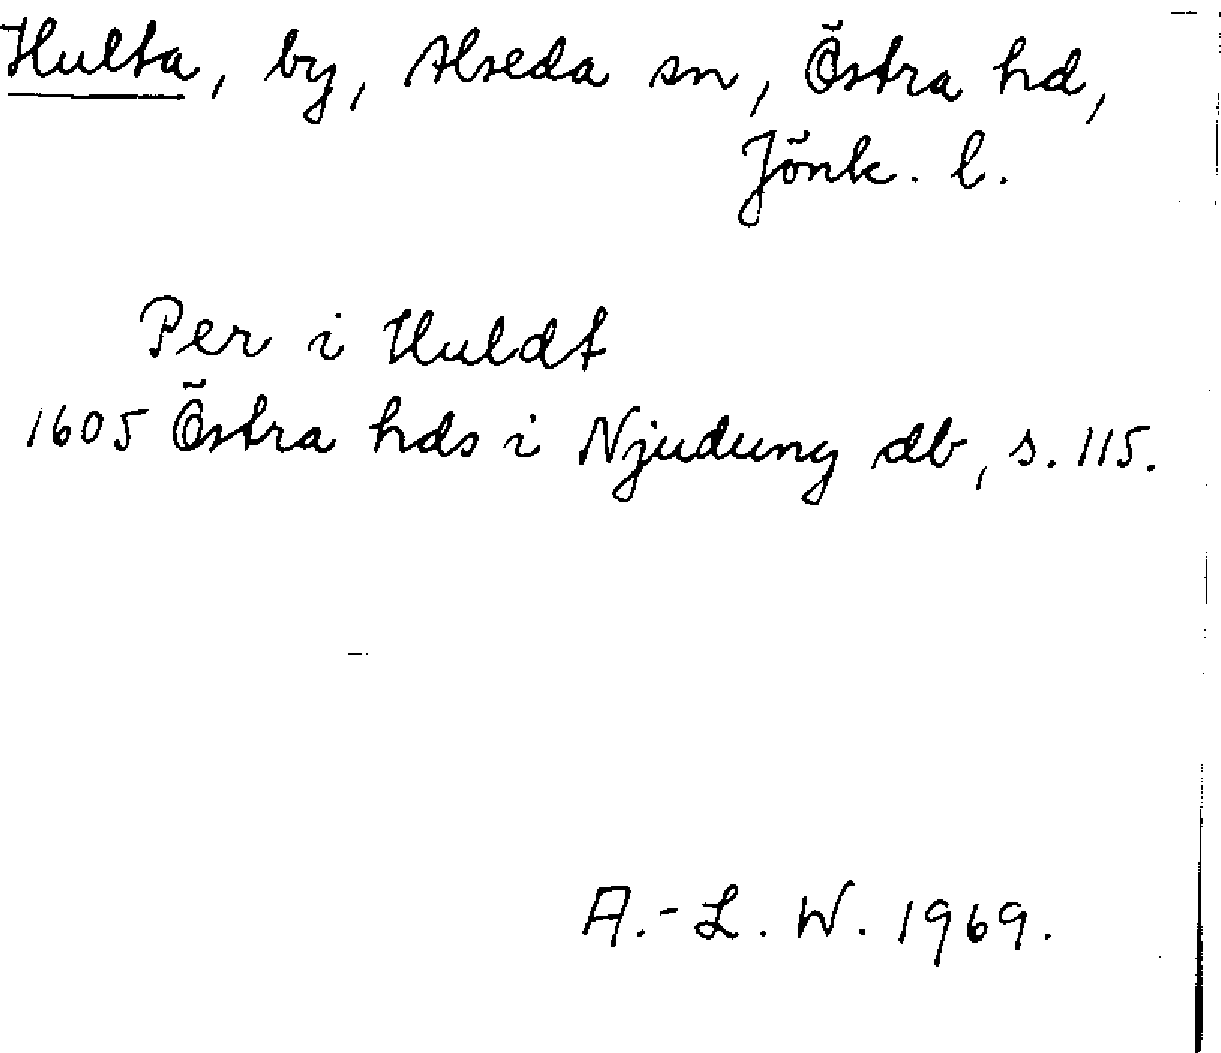 Hulta, by, Alseda sn, Östra hd,
Jönk. l.
Per i Huldt
1605 Östra hds i Njudung db, s. 115.
A.-L. W. 1969.